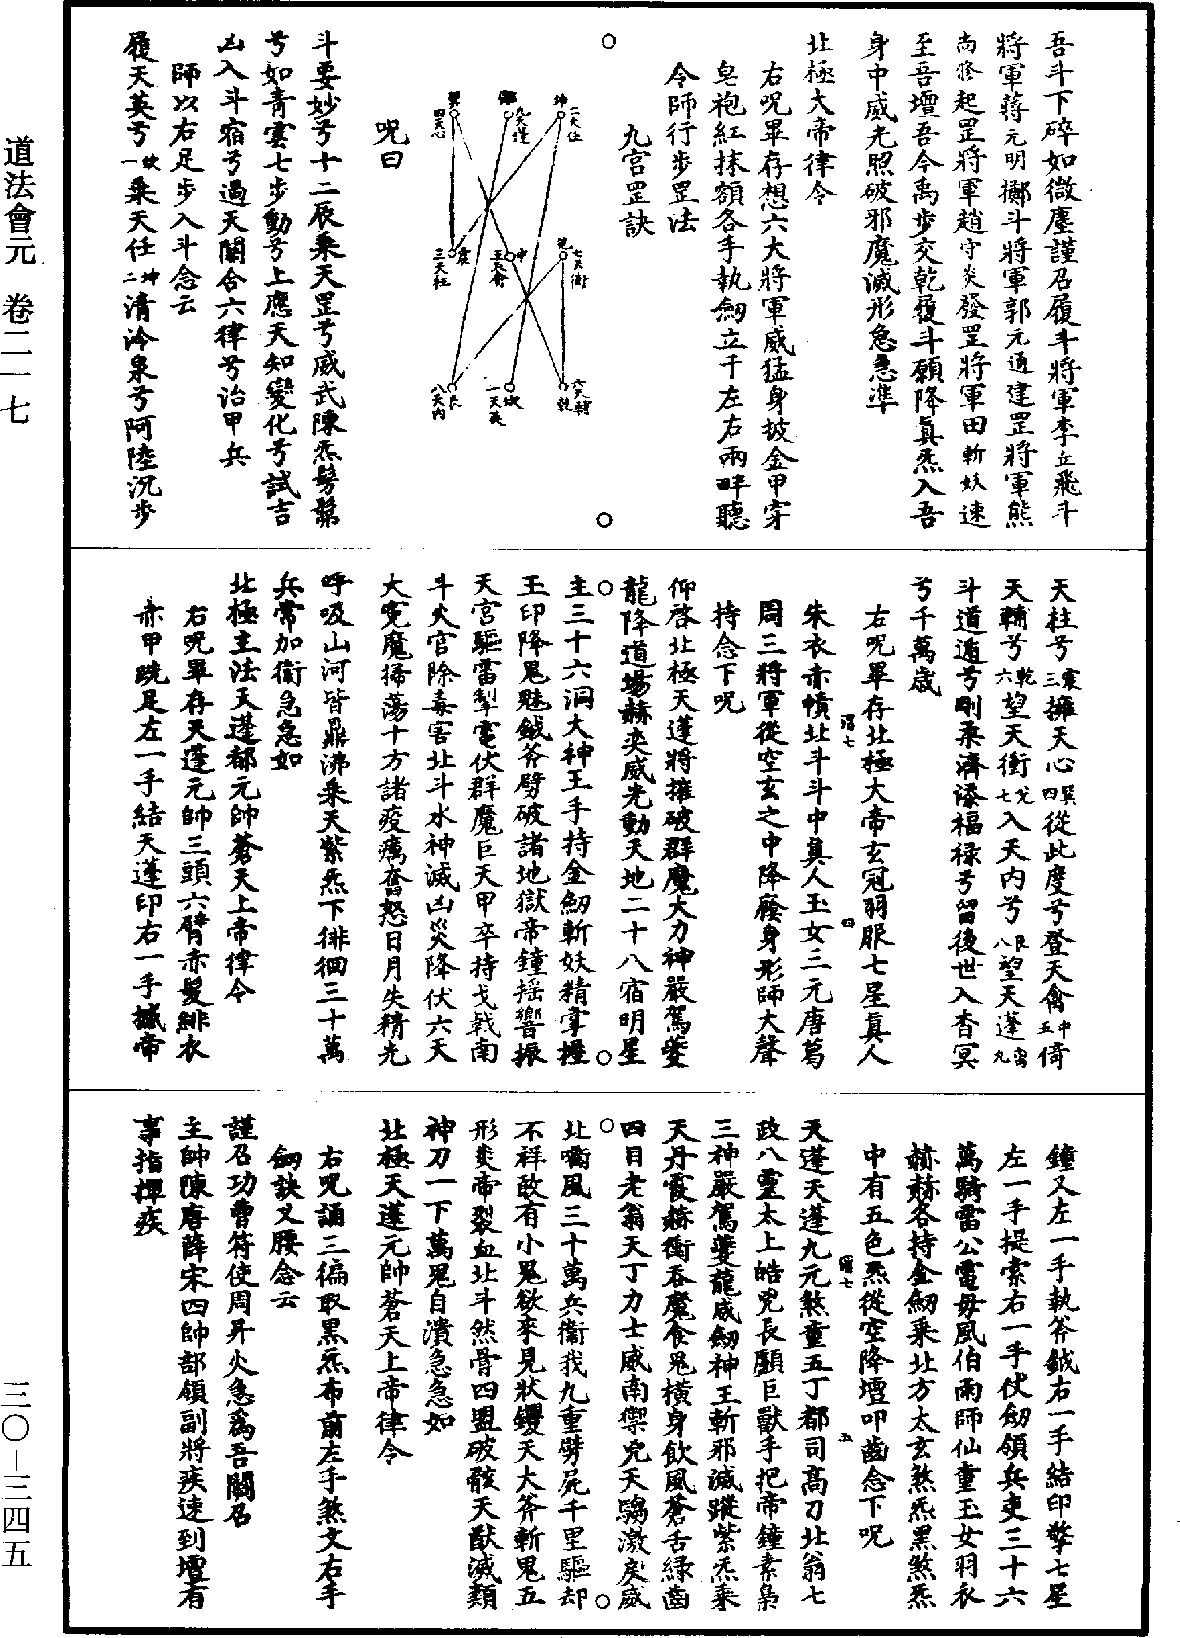 道法會元 卷二一七
三〇—三四五
吾斗下碎如微塵謹召履斗將軍李丘飛斗
將軍蔣元明擲斗將軍郭元通建罡將軍熊
尚修起罡將軍趙守炎發罡將軍田斬妖速
至吾壇吾今禹步交乾履斗願降真炁入吾
身中威光照破邪魔滅形急急準
北極大帝律令
右呪畢存想六大將軍威猛身披金甲穿
皂袍紅抹額各手執劒立于左右兩畔聽
令師行步罡法
九宮罡訣
坤 二天任
離 九天蓬
巽 四天心
兌 七天衝
中 五天禽
震 三天柱
六天輔 乾
一天英 坎
八天內 艮
呪曰
斗要妙兮十二辰乘天罡兮威武陳炁髣髴
兮如青雲七步動兮上應天知變化兮試吉
凶入斗宿兮過天關合六律兮治甲兵
師以右足步入斗念云
履天英兮坎一乘天任坤二清泠泉兮阿陸沉步
天柱兮震三擁天心巽四從此度兮登天禽中五倚
天輔兮乾六望天衝兌七入天內兮艮八望天蓬離九
斗道通兮剛柔濟添福祿兮留後世入杳冥
兮千萬歲
右呪畢存北極大帝玄冠羽服七星真人
朱衣赤幘北斗斗中真人玉女三元唐葛
周三將軍從空玄之中降廕身形師大聲
持念下呪
仰啓北極天蓬將摧破群魔大力神嚴駕夔
龍降道場赫奕威光動天地二十八宿明星
主三十六洞大神王手持金劒斬妖精掌握
王印降鬼魅鉞斧劈破諸地獄帝鐘摇響振
天宮驅雷掣電伏群魔巨天甲卒持戈戟南
斗火官除毒害北斗水神滅凶災降伏六天
大寃魔掃蕩十方諸疫癘奮怒日月失精光
呼吸山河皆鼎沸乘天紫炁下徘徊三十萬
兵常加衛急急如
北極主法天蓬都元帥蒼天上帝律令
右呪畢存天蓬元帥三頭六臂赤髮緋衣
赤甲跣足左一手結天蓬印右一手撼帝
鐘又左一手執斧鉞右一手結印擎七星
左一手提索右一手仗劒領兵吏三十六
萬騎雷公電母風伯雨師仙童玉女羽衣
赫赫各持金劒乘北方太玄煞炁黑煞炁
中有五色炁從空降壇叩齒念下呪
天蓬天蓬九元煞童五丁都司高刀北翁七
政八靈太上皓兇長顱巨獸手把帝鐘素梟
三神嚴駕夔龍威劒神王斬邪滅蹤紫炁乘
天丹霞赫衝吞魔食鬼橫身飲風蒼舌緑齒
四目老翁天丁力士威南禦兇天騶激戾威
北啣風三十萬兵衛我九重劈屍千里驅却
不祥敢有小鬼欲來見狀钁天大斧斬鬼五
形炎帝裂血北斗然骨四盟破骸天猷滅類
神刀一下萬鬼自潰急急如
北極天蓬元帥蒼天上帝律令
右呪誦三徧取黑炁布前左手煞文右手
劒訣叉腰念云
謹召功曹符使周昇火急爲吾關召
主帥陳唐薛宋四帥部領副將疾速到壇有
事指揮疾